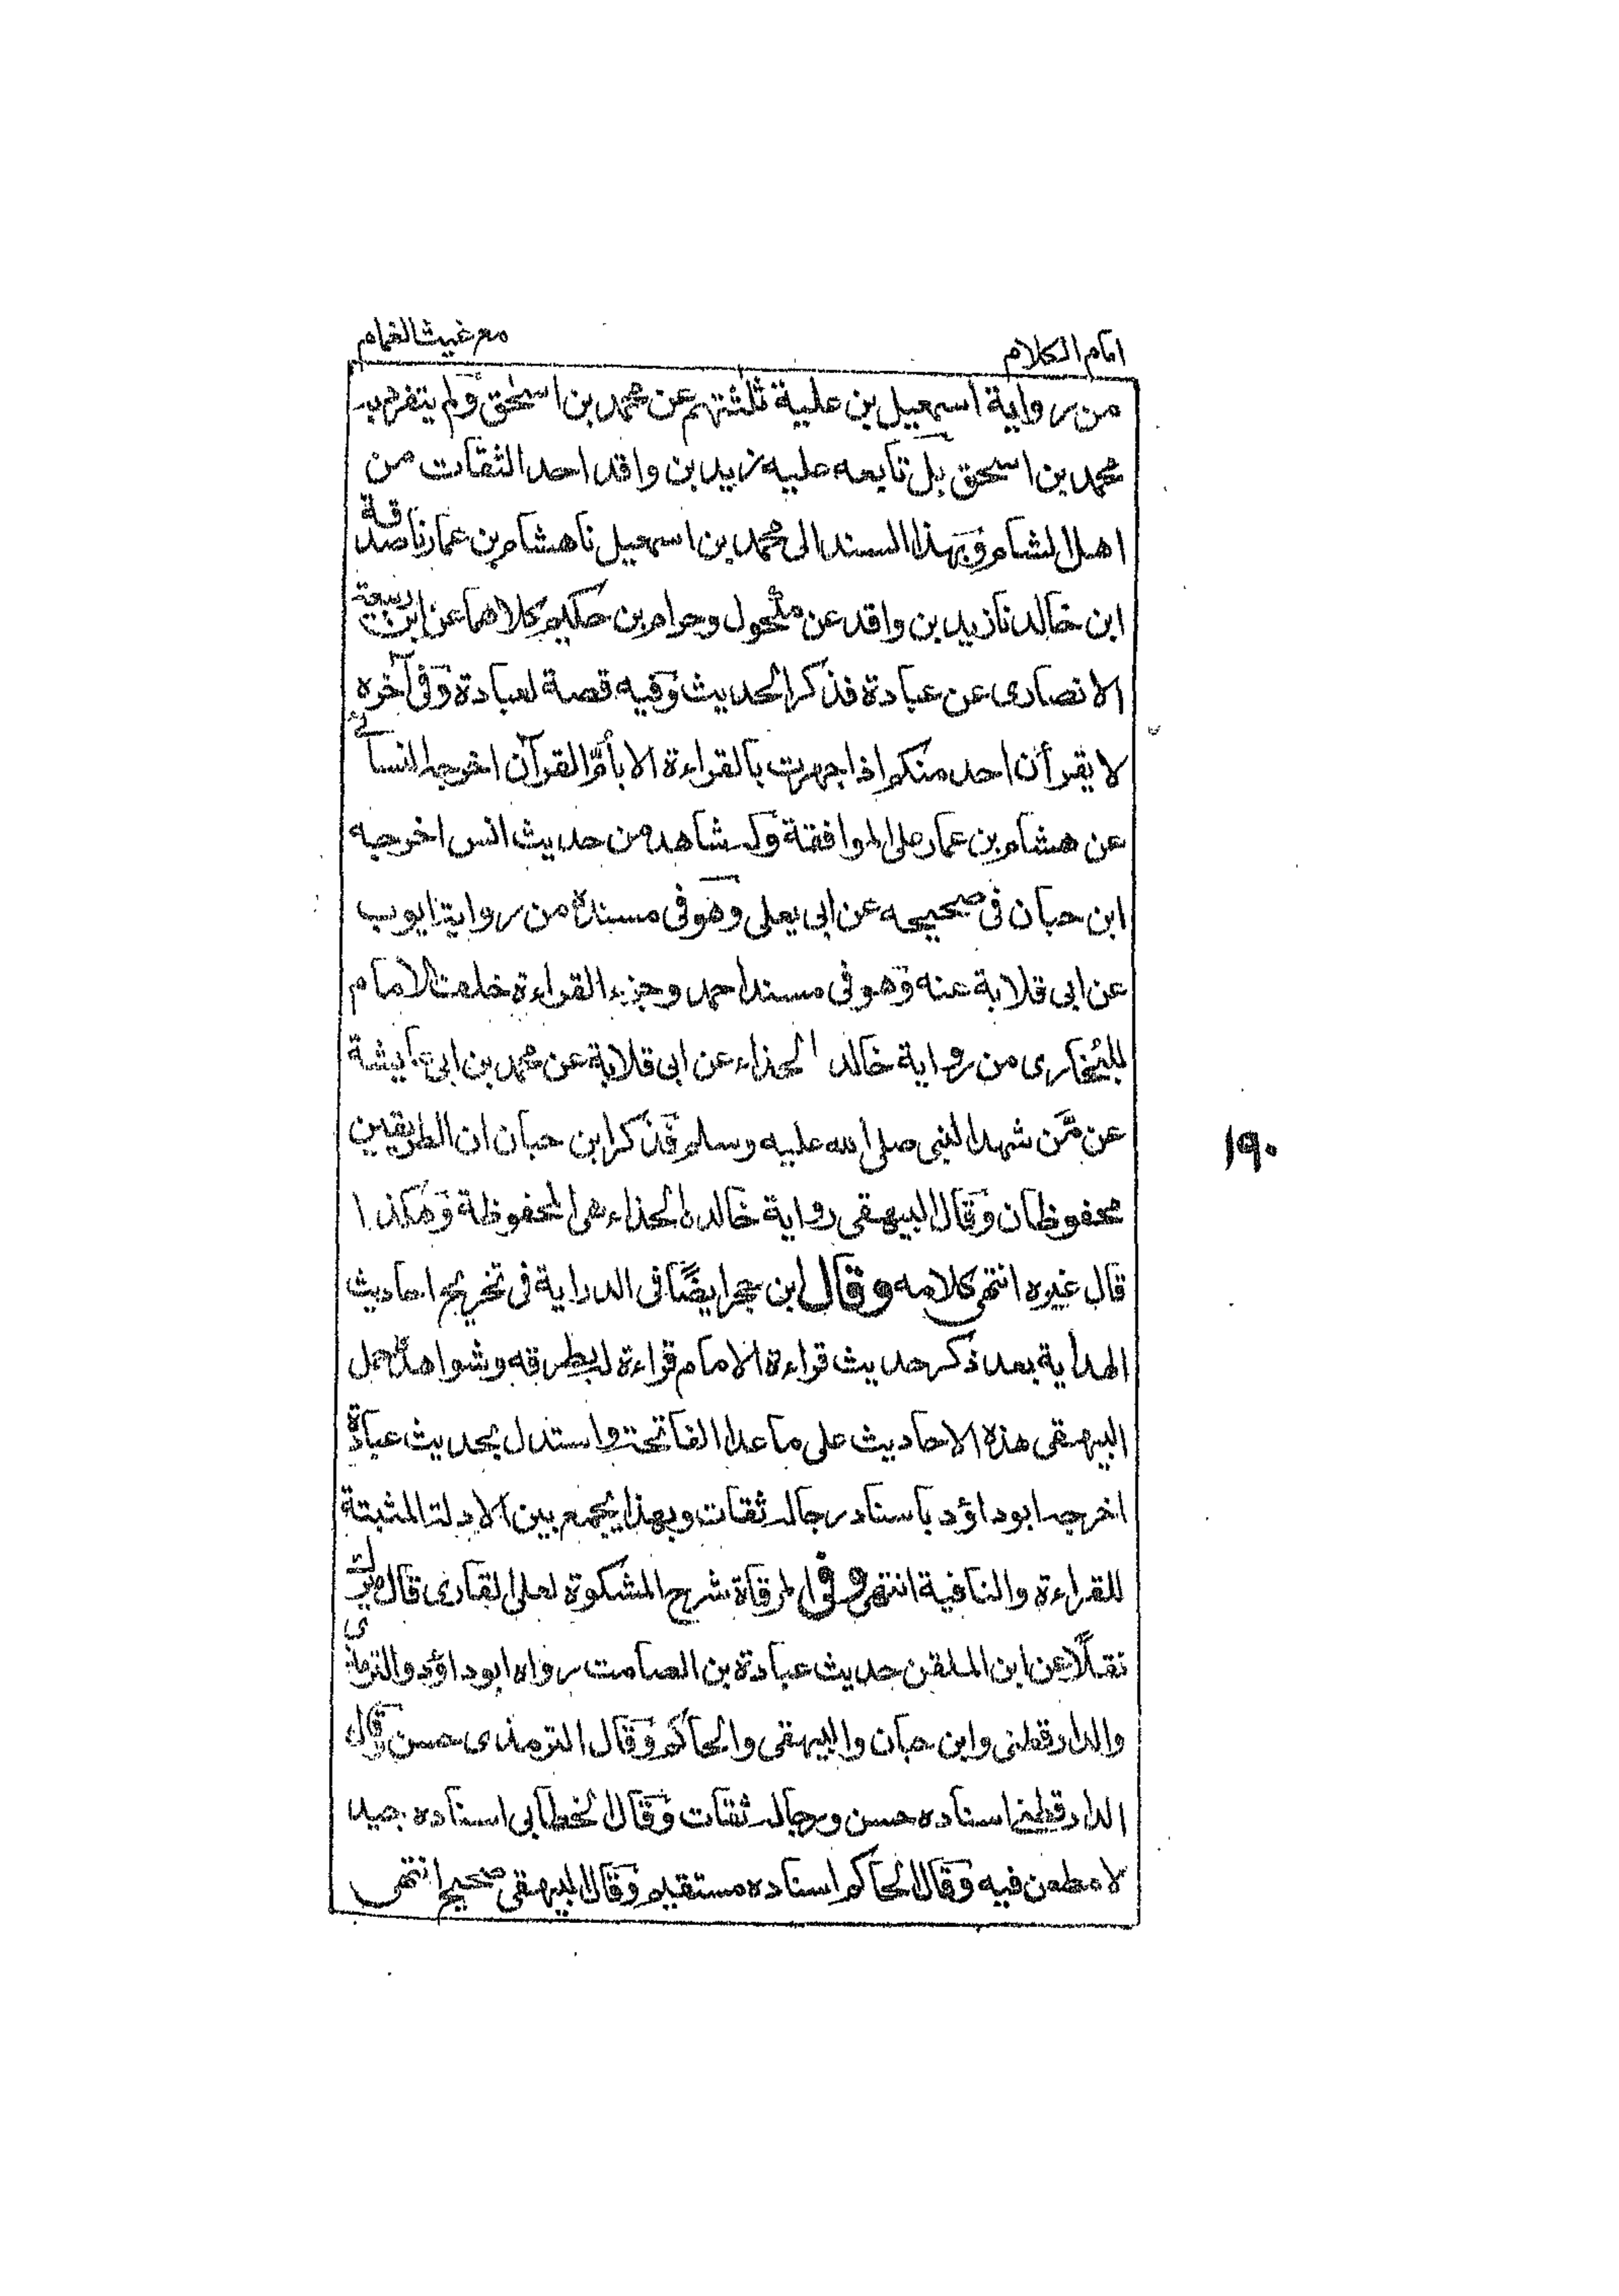 امام الكلام
مع غيث الغمام
من رواية اسمعيل بن علية ثلثتهم عن محمد بن اسحٰق ولم يتفرد به
محمد بن اسحق بل تابعه عليه زيد بن واقد احد الثقات من
اهل الشام وبهذا السند الى محمد بن اسمعيل نا هشام بن عمار نا صدقة
ابن خالد نا زيد بن واقد عن مكحول وحرام بن حكيم كلاهما عن ابن ربيعة
الانصارى عن عبادة فذكر الحديث وفيه قصة لعبادة وفى آخره
لا يقرأن احد منكم اذا جهرت بالقراءة الا بأم القرآن اخرجه النسائے
عن هشام بن عمار على الموافقة وله شاهد من حديث انس اخرجه
ابن حبان فى صحيحه عن ابى يعلى وهو فى مسنده من رواية ايوب
عن ابى قلابة عنه وهو فى مسند احمد وجزء القراءة خلف الامام
للبُخارى من رواية خالد الحذاء عن ابى قلابة عن محمد بن ابى عايشة
عن مَّن شهد النبى صلى الله عليه وسلم فذكر ابن حبان ان الطريقين
محفوظان وقال البيهقى رواية خالد الحذاء هى المحفوظة وهكذا
قال غيره انتهى كلامه وقال ابن حجر ايضًا فى الدراية فى تخريج احاديث
الهداية بعد ذكر حديث قراءة الامام قراءة له بطرقه وشواهده حمل
البيهقى هذه الاحاديث على ما عدا الفاتحة واستدل بحديث عبادة
اخرجه ابوداؤد باسناد رجاله ثقات وبهذا يجمع بين الادلة المثبتة
للقراءة والنافية انتهى وفى المرقاة شرح المشكوة لعلى القارى قال ميرك
نقلًا عن ابن الملقن حديث عبادة بن الصامت رواه ابوداؤد والترمذى
والدارقطنى وابن حبان والبيهقى والحاكم وقال الترمذى حسن وقال
الدارقطنے اسناده حسن ورجاله ثقات وقال الخطابى اسناده جيد
لا مطعن فيه وقال الحاكم اسناده مستقيم وقال البيهقى صحيح انتهى
١٩٠